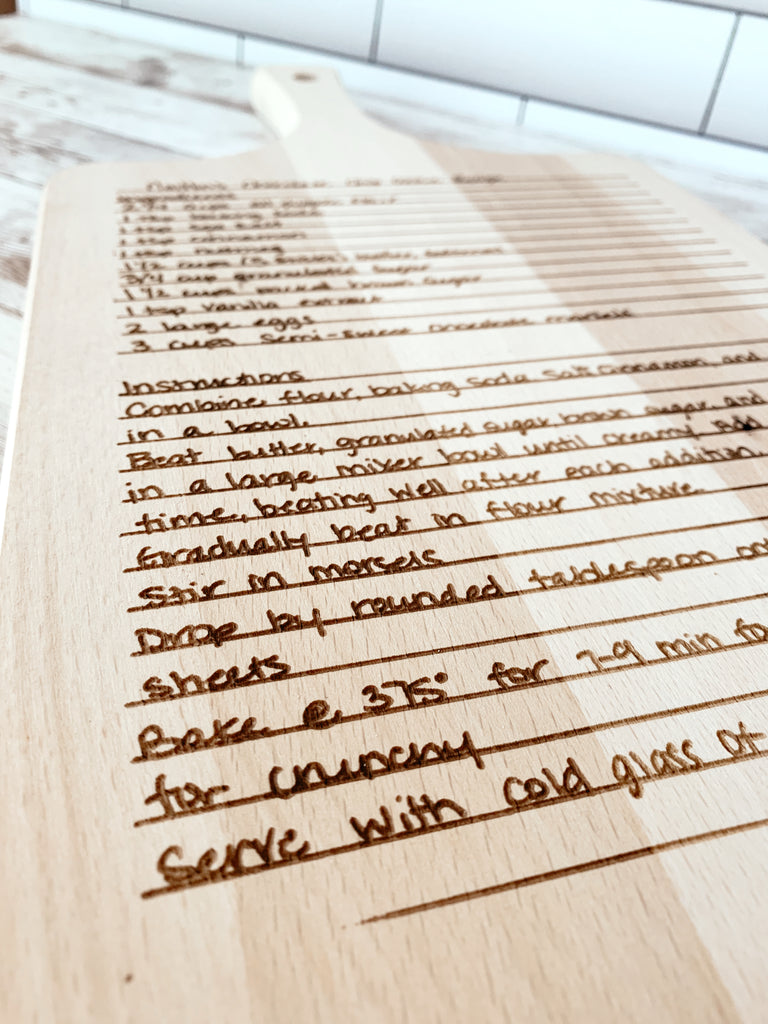 Chocolate Chip Cookie Recipe
cups all purpose flour
1 tsp baking soda
1 tsp sea salt
1 tsp cinnamon
1 tsp nutmeg
1 1/2 cups butter,
3/4 cup granulated sugar
1 1/2 cups packed brown sugar
1 tsp vanilla extract
2 large eggs
3 cups semi-sweet chocolate morsels
Instructions
Combine flour, baking soda salt cinnamon, and
in a bowl.
Beat butter, granulated sugar, brown sugar, and
in a large mixer bowl until creamy. Add
time, beating well after each addition.
Gradually beat in flour mixture.
Stir in morsels
Drop by rounded tablespoon on
sheets
Bake @ 375° for 7-9 min fo
for crunchy
Serve with cold glass of